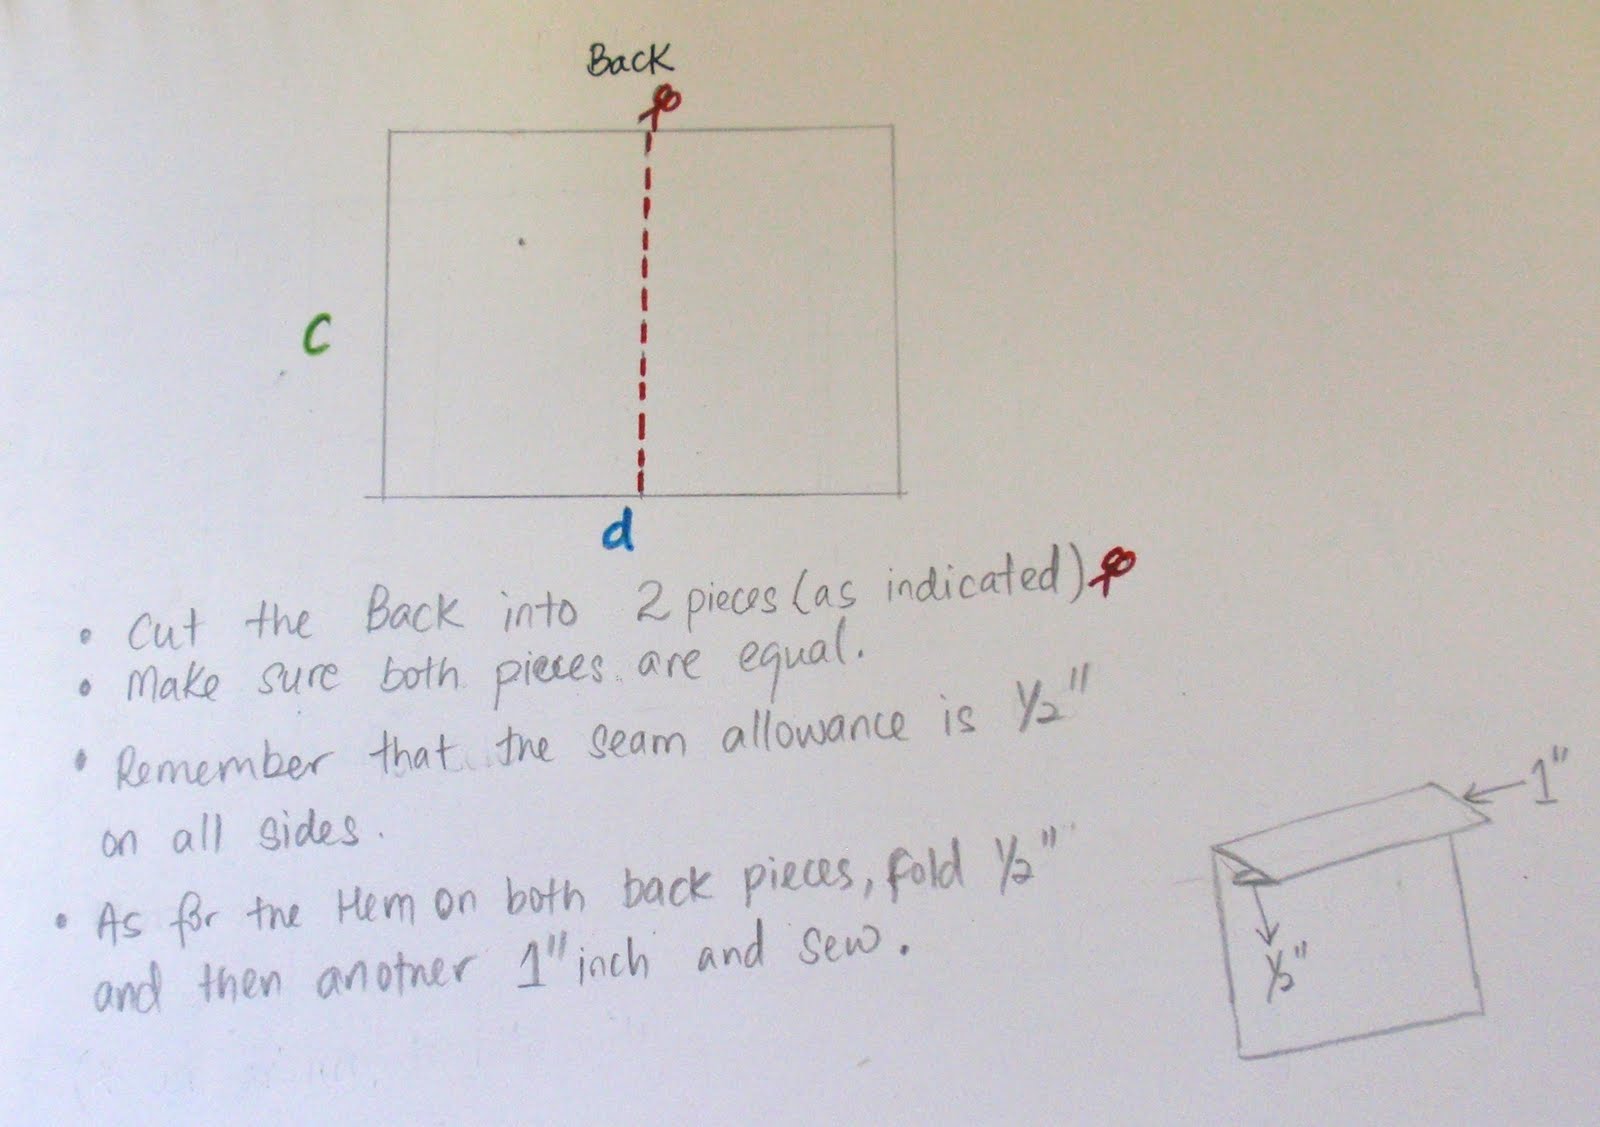 Back
C
d
• Cut the Back into 2 pieces (as indicated)
• Make sure both pieces are equal.
• Remember that the seam allowance is 1/2"
on all sides.
• As for the Hem on both back pieces, fold 1/2"
and then another 1" inch and sew.
1"
1/2"